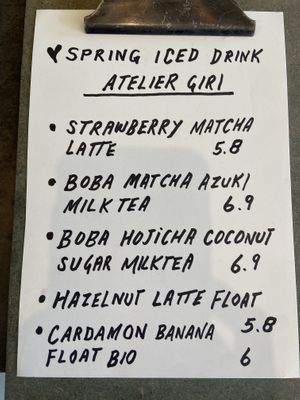 ♥ SPRING ICED DRINK
ATELIER GIRI
• STRAWBERRY MATCHA
LATTE 5.8
• BOBA MATCHA AZUKI
MILK TEA 6.9
• BOBA HOJICHA COCONUT
SUGAR MILKTEA 6.9
• HAZELNUT LATTE FLOAT
5.8
• CARDAMON BANANA
FLOAT BIO 6